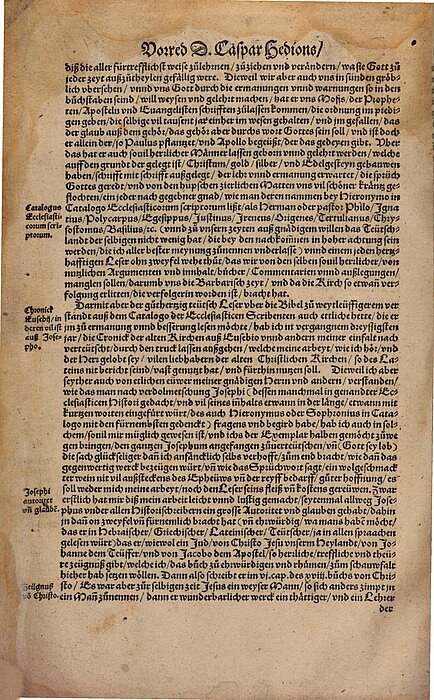 Vorred D. Caspar Hedions/
diß die aller fürtrefflichst weise zülehrnen/ zůziehen vnd verändern/ wa sie Gott zů
jeder zeyt außzůtheylen gefällig were. Dieweil wir aber auch vns in sünden gröb-
lich vbersehen/ vnnd vns Gott durch die ermanungen vnnd warnungen so in den
bůchstaben seind/ will weysen vnd gelehrt machen/ hat er vns Moses/ der Prophe-
ten/ Aposteln vnd Euangelisten schrifften zůlassen kommen/ die ordnung im predi-
gen geben/ die selbige vil tausent jar einher im wesen gehalten/ vnd jm gefallen/ das
der glaub auß dem gehör/ das gehör aber durchs wort Gottes sein soll/ vnd ist doch
er allein der/ so Paulus pflantzet/ vnd Apollo begeüßt/ der das gedeyen gibt. Vber
das hat er auch souil herrlicher Männer lassen geborn vnd gelehrt werden/ welche
auff den grundt der gelegt ist/ Christum/ gold/ silber/ vnd Edelgesteyn gebauwen
haben/ schrifft mit schrifft außgelegt/ der lehr vnnd ermanung erwartet/ die sprüch
Gottes geredt/ vnd von den hüpschen zierlichen Matten vns vil schöner kräntz ge-
flochten/ ein jeder nach gegebner gnad/ wie man deren nammen bey Hieronymo im
Catalogus
Ecclesiasti-
corum scri-
ptorum.
Catalogo Ecclesiasticorum scriptorum lißt/ als Herman der pastor Philo/ Igna-
tius/ Polycarpus/ Egesippus/ Justinus/ Ireneus/ Origenes/ Tertulianus/ Chry-
sostomus/ Basilius/ꝛc. (vnnd zů vnsern zeyten auß gnädigem willen das Teütsch-
landt der selbigen nicht wenig hat/ die bey den nachkom̃nen in hoher achtung sein
werden/ die ich aller bester meynung zůnennen vnderlasse) vnnd einem jeden hertz-
hafftigen Leser on zweyfel wehe thůt/ das wir von den selben souil herrlicher/ von
nutzlichen Argumenten vnd innhalt/ bücher/ Commentarien vnnd außlegungen/
manglen sollen/ darumb vns die Barbarisch zeyt/ vnd da die Kirch so etwan ver-
folgung erlitten/ die verfolgerin worden ist/ bracht hat.
Chronick
Eusebij/ in
deren vil ist
auß Jose-
pho.
Darmit aber der gůthertzig teütsch Leser vber die Bibel zů weytleüffigerem ver-
standt auß dem Catalogo der Ecclesiasticen Scribenten auch etliche hette/ die er
jm zů ermanung vnnd besserung lesen möchte/ hab ich in vergangnem dreyssigsten
jar/ die Cronick der alten Kirchen auß Eusebio vnnd andern meiner einfalt nach
verteütscht/ durch den truck lassen außgehen/ welche mein arbeyt/ wie ich hör/ vnd
der Herr gelobt sey/ vilen liebhabern der alten Christlichen Kirchen/ so des La-
teins nit bericht seind/ vast genutzt hat/ vnd fürthin nutzen soll. Dieweil ich aber
seyther auch von etlichen eüwer meiner gnädigen Herrn vnd andern/ verstanden/
wie das man nach verdolmetschung Josephi (dessen manchmal in genandter Ec-
clesiasticen Histori gedacht/ vnd vil seines inhalts etwann in der länge/ etwann mit
kurtzen worten eingefürt würt/ des auch Hieronymus oder Sophonius in Cata-
logo mit den fürnembsten gedenckt) fragens vnd begird habe/ hab ich auch in sol-
chem/ souil mir müglich gewesen ist/ vnd ichs der Exemplar halben gemöcht zůwe-
gen bringen/ den gantzen Josephum angefangen zůuerteütschen/ vñ (Gott sey lob)
die sach glückseliger dañ ich anfäncklich selbs verhofft/ zům end bracht/ wie dañ das
gegenwertig werck bezeügen würt/ vñ wie das Sprüchwort sagt/ ein wolgeschmack-
ter wein nit vil außsteckens des Epheüws vñ der reyff bedarff/ gůter hoffnung/ es
soll weder mich meine arbeyt/ noch den Leser seins fleiß vñ kostens gereüwen. Zwar
Josephi
autoritet
vñ glaubē.
erstlich hat mir diß mein arbeyt leicht vnnd lustig gemacht/ seytenmal allweg Jose-
phus vnder allen Historischreibern ein grosse Autoritet vnd glauben gehabt/ dahin
jn dañ on zweyfel vñ fürnemlich bracht hat (vñ ehrwürdig/ wa mans haben möcht/
das er in Hebraischer/ Griechischer/ Lateinischer/ Teütscher/ ja in allen sprachen
gelesen würt) das er/ wiewol ein Jud/ von Christo Jesu vnserm Heyland/ von Jo-
hanne dem Teüffer/ vnd von Jacobo dem Apostel/ so herrliche/ treffliche vnd theü-
re zeügnuß gibt/ welche ich/ das bůch zů ehrwürdigen vnd rhümen/ zům schauwfalt
hieher hab setzen wöllen. Dann also schreibt er im vj. cap. des xviij. bůchs von Chri-
Zeügnuß
vō Christo.
sto/ Es war aber zůr selbigen zeit Jesus ein weyser Mann/ so sich anders zimpt jn
ein Mañ zůnennen/ dann er wunderbarlicher werck ein thättiger/ vnd ein Lehrer
der